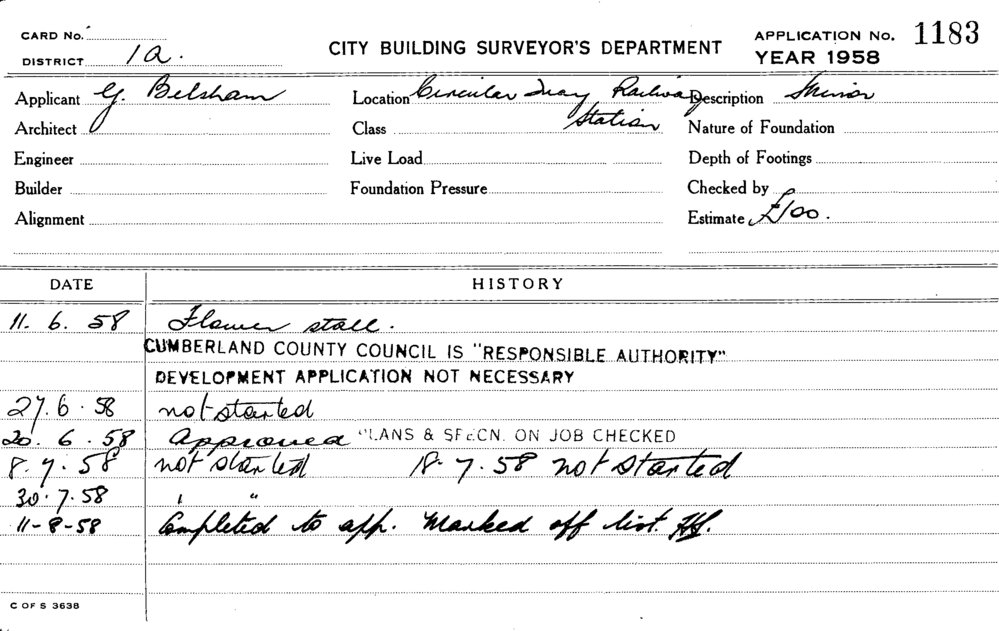 CARD No.
DISTRICT 1a.
CITY BUILDING SURVEYOR'S DEPARTMENT
APPLICATION No. 1183
YEAR 1958
Applicant G. Belsham
Location Circular Quay Railway Station
Description Minor
Architect
Class
Nature of Foundation
Engineer
Live Load
Depth of Footings
Builder
Foundation Pressure
Checked by
Alignment
Estimate £100.
DATE HISTORY
11. 6. 58 Flower stall.
CUMBERLAND COUNTY COUNCIL IS "RESPONSIBLE AUTHORITY"
DEVELOPMENT APPLICATION NOT NECESSARY
27. 6. 58 not started
20. 6. 58 Approved PLANS & SPECN. ON JOB CHECKED
8. 7. 58 not started 18. 7. 58 not started
30. 7. 58 " "
11-8-58 Completed to app. Marked off list.
C OF S 3638